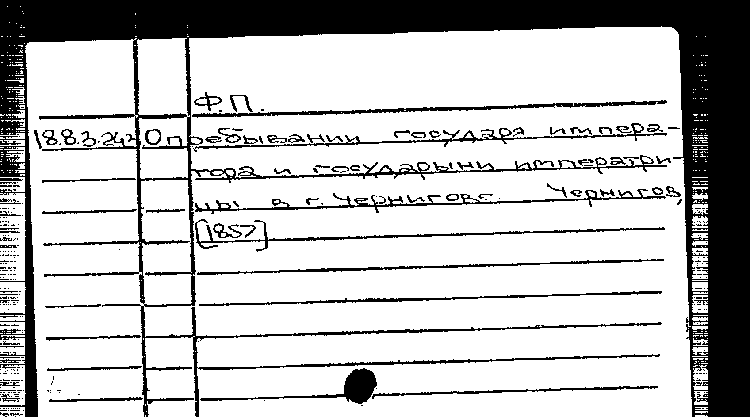 Ф.П.
18.8.3.242 О пребывании государя импера-
тора и государыни императри-
цы в г. Чернигове. Чернигов,
[1857]